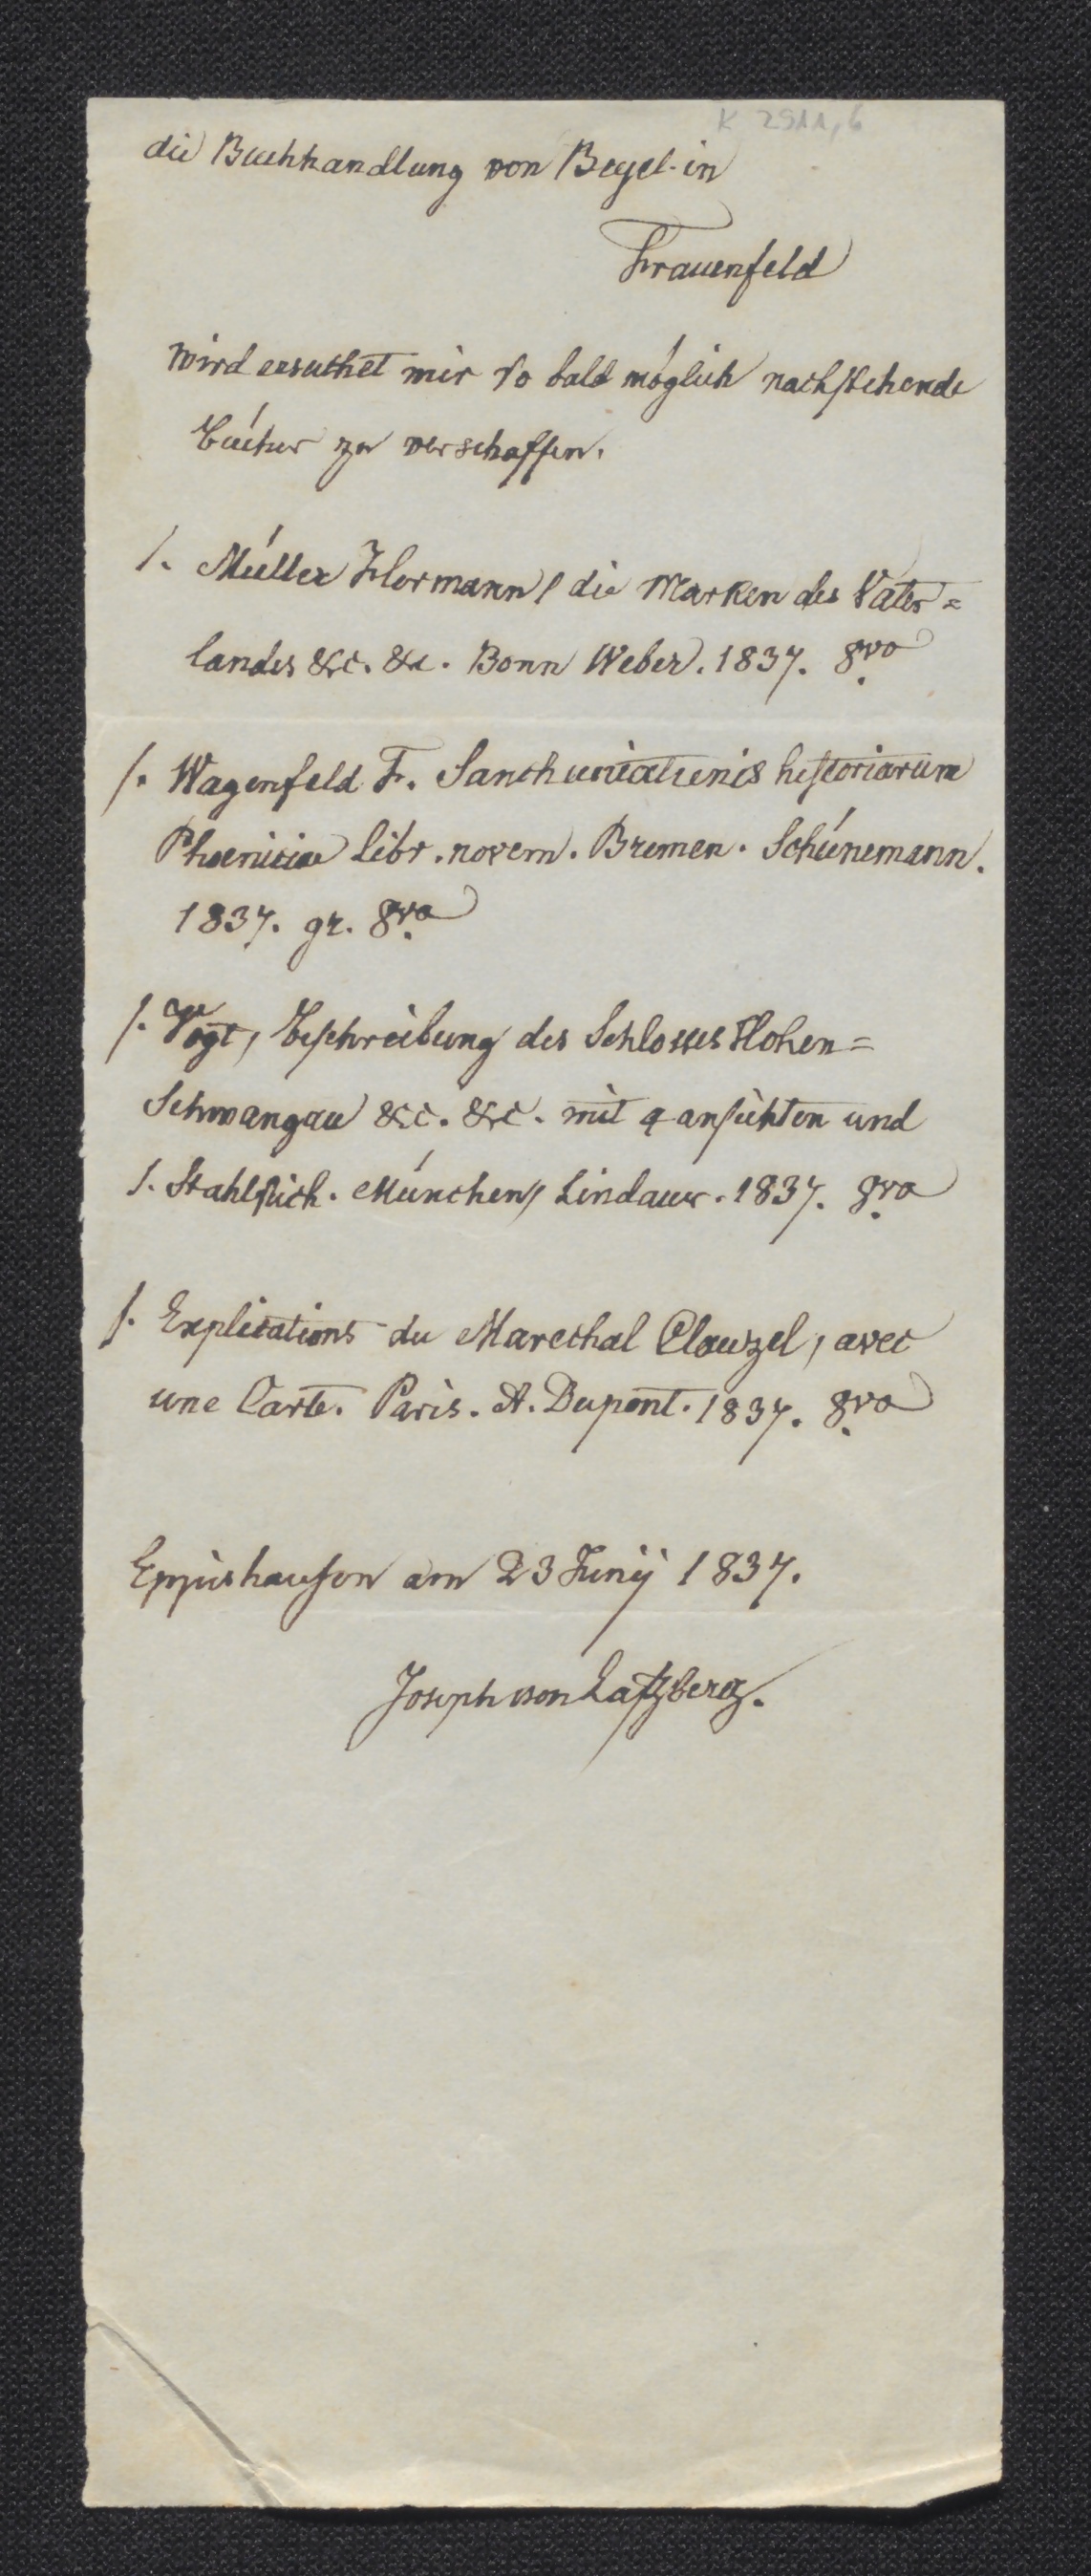 K 2911,6
die Buchhandlung von Beyel in
Frauenfeld
wird ersuchet mir so bald möglich nachstehende
bücher zu verschaffen.
1. Müller Hermann, die Marken des Vater=
landes &c. &c. Bonn Weber. 1837. 8vo
1. Wagenfeld F. Sanchuniathonis historiarum
Phoenicia libr. novem. Bremen. Schünemann.
1837. gr. 8vo
1. Vogt, beschreibung des Schlosses Hohen=
Schwangau &c. &c. mit 4 ansichten und
1. Stahlstich. München, Lindauer. 1837. 8vo
1. Explications du Marechal Clauzel, avec
une Carte. Paris. A. Dupont. 1837. 8vo
Eppishausen am 23 Junij 1837.
Joseph von Laßberg.